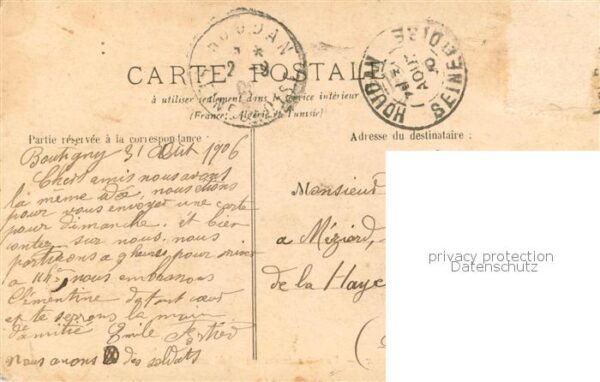 HOUDAN
2 9
SEINE ET OISE
HOUDAN
AOUT
SEINE ET OISE
CARTE POSTALE
à utiliser seulement dans le service intérieur
(France, Algérie et Tunisie)
Partie réservée à la correspondance
Boutigny 31 Août 1906
Chers amis nous avons
la même idée, nous étions
pour vous envoyer une carte
pour dimanche, et bien
contez sur nous. nous
partirons a 9 heures pour
a 11h nous embrassons
Clémentine de tout cœur
et te serrons la main
d'amitié Emile
Nous avons des soldats
Adresse du destinataire :
Monsieur
a Mézières
de la Haye
privacy protection
Datenschutz